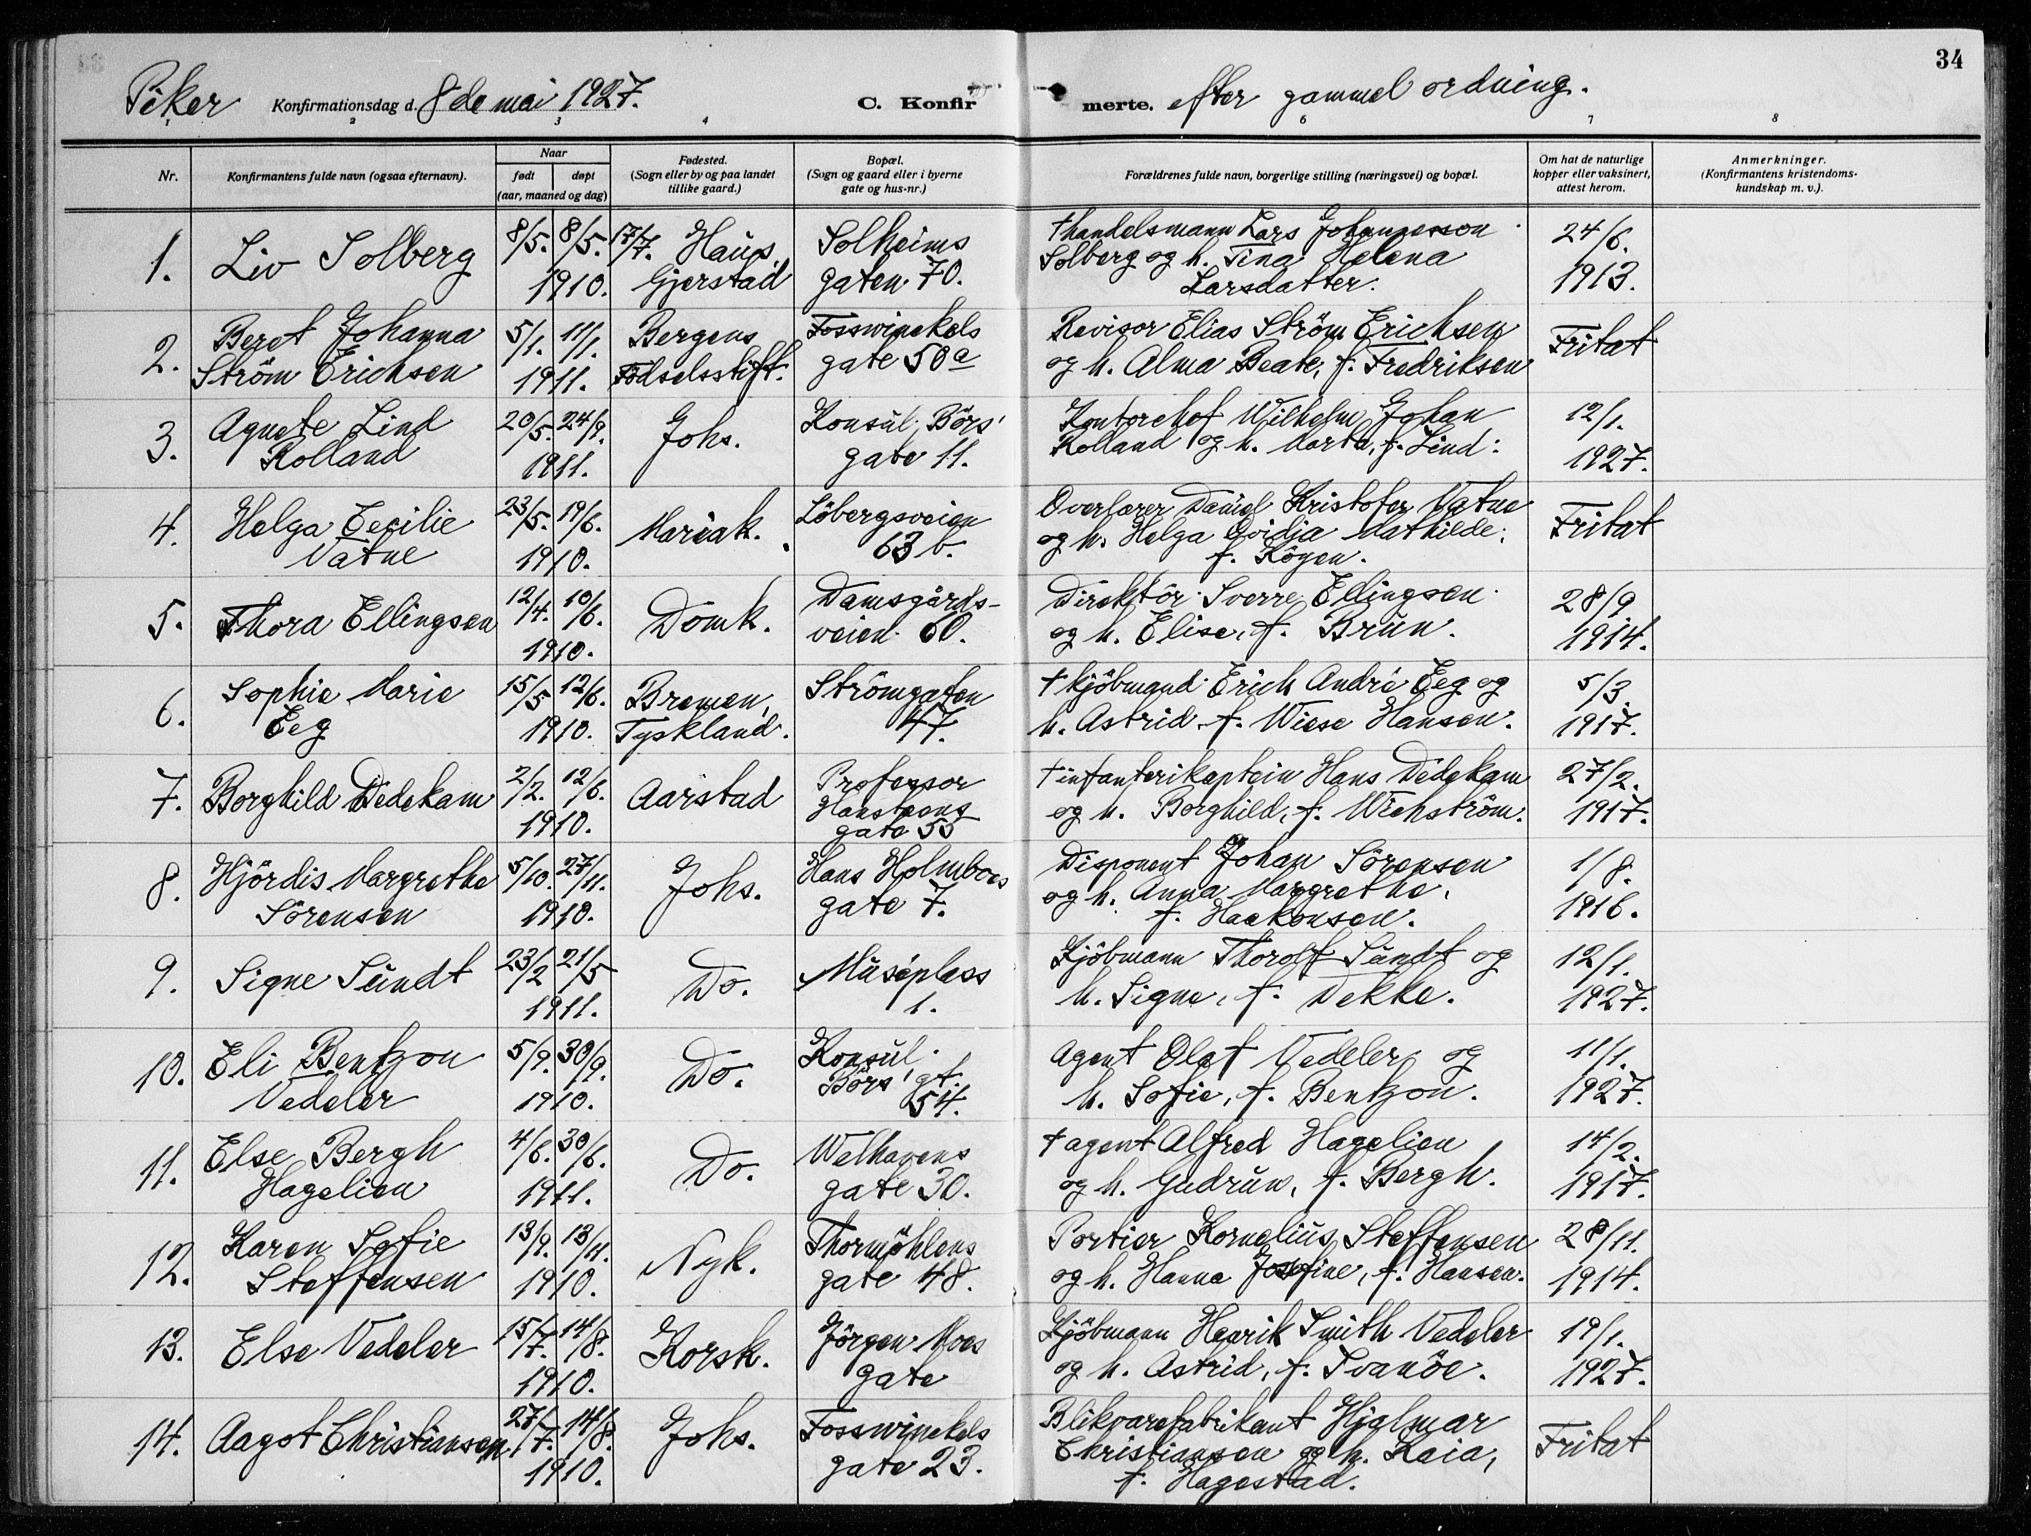 34
Piker Konfirmationsdag d. 8de mai 1927. C. Konfirmerte. efter gammel ordning.
1 2 3 4 6 7 8
Nr. Konfirmantens fulde navn (ogsaa efternavn). Naar født døpt (aar, maaned og dag) Fødested. (Sogn eller by og paa landet tillike gaard.) Bopæl. (Sogn og gaard eller i byerne gate og hus-nr.) Forældrenes fulde navn, borgerlige stilling (næringsvei) og bopæl. Om hat de naturlige kopper eller vaksinert, attest herom. Anmerkninger. (Konfirmantens kristendomskundskap m. v.).
1. Liv Solberg 8/5. 8/5. 17/7. Haus, Solheims † handelsmann Lars Johannesson 24/6.
1910. Gjerstad gaten 70. Solberg og h. Tina Helena 1913.
Larsdatter.
2. Beret Johanna 5/1. 11/1. Bergens Fosswinckels Revisor Elias Ström Erichsen Fritat
Ström Erichsen 1911. Födselsstift. gate 50a og h. Alma Beate, f. Fredriksen
3. Agnete Lind 20/5. 24/9. Johs. Konsul Börs' Kontorchef Wilhelm Johan 12/1.
Rolland 1911. gate 11. Rolland og h. Marta, f. Lind. 1927.
4. Helga Cecilie 23/5. 19/6. Mariak. Löbergsveien Overlærer Daniel Kristofer Vatne Fritat
Vatne 1910. 63 b. og h. Helga Ovidia Mathilde,
f. Kögen.
5. Thora Ellingsen 12/4. 10/6. Domk. Damsgårds- Direktör Sverre Ellingsen 28/9
1910. veien 60. og h. Elise, f. Brun. 1914.
6. Sophie Marie 15/5 12/6. Bremen, Strömgaten † kjöbmand Erich André Eeg og 5/3.
Eeg 1910. Tyskland. 47. h. Astrid, f. Wiese Hansen. 1917.
7. Borghild Dedekam 2/2. 12/6. Aarstad Professor † infanterikaptein Hans Dedekam 27/2.
1910. Hansteens og h. Borghild, f. Wiehström. 1917.
gate 55
8. Hjördis Margrethe 5/10. 27/11. Johs. Hans Holmboes Disponent Johan Sörensen 1/8.
Sörensen 1910. gate 7. og h. Anna Margrethe, 1916.
f. Haakonsen.
9. Signe Sundt 23/2 21/5 Do. Muséplass Kjöbmann Thorolf Sundt og 12/1.
1911. 1. h. Signe, f. Dekke. 1927.
10. Eli Bentzon 5/9. 30/9. Do. Konsul Agent Olaf Vedeler og 11/1.
Vedeler 1910. Börs' gt. h. Sofie, f. Bentzon. 1927.
54.
11. Else Bergh 4/6. 30/6. Do. Welhavens † agent Alfred Hagelien 14/2.
Hagelien 1911. gate 30. og h. Gudrun, f. Bergh. 1917.
12. Karen Sofie 13/9. 13/11. Nyk. Thormöhlens Portier Kornelius Steffensen 28/11.
Steffensen 1910. gate 48. og h. Hanna Josefine, f. Hansen. 1914.
13. Else Vedeler 15/7. 14/8. Korsk. Jörgen Moes Kjöbmann Henrik Smith Vedeler 19/1.
1910. gate og h. Astrid, f. Svanöe. 1927.
14. Aagot Christiansen 27/7. 14/8. Johs. Fosswinckels Blikvarefabrikant Hjalmar Fritat
1910. gate 23. Christiansen og h. Kaia,
f. Hagestad.